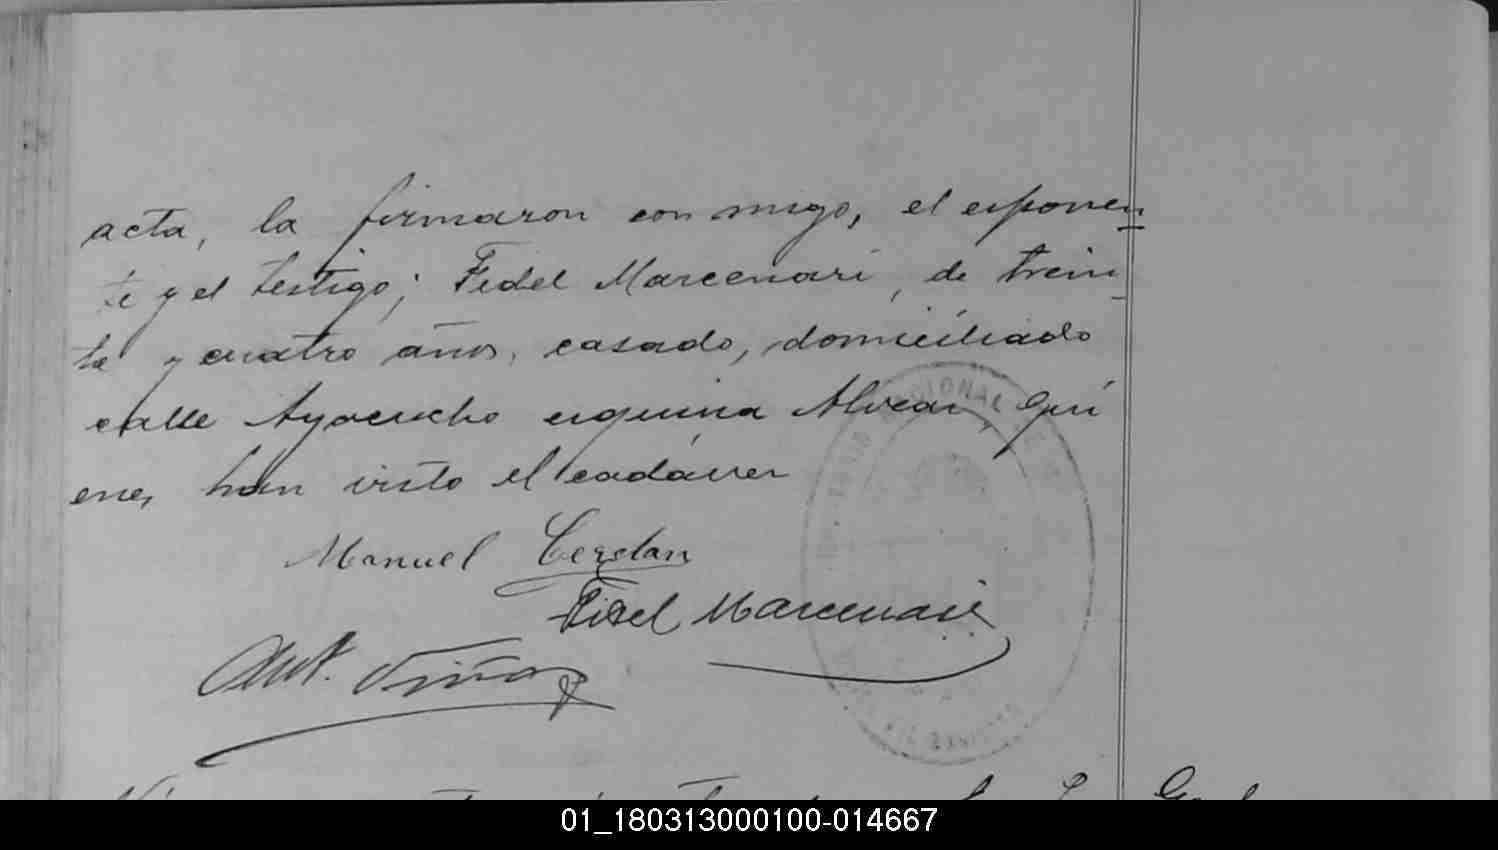 acta, la firmaron con migo, el esponen
te y el testigo; Fidel Marcenari, de trein
ta y cuatro años, casado, domiciliado
calle Ayacucho esquina Alvear, qui
enes han visto el cadáver
Manuel Cerdan
Fidel Marcenari
Ant. Viñas
01_180313000100-014667